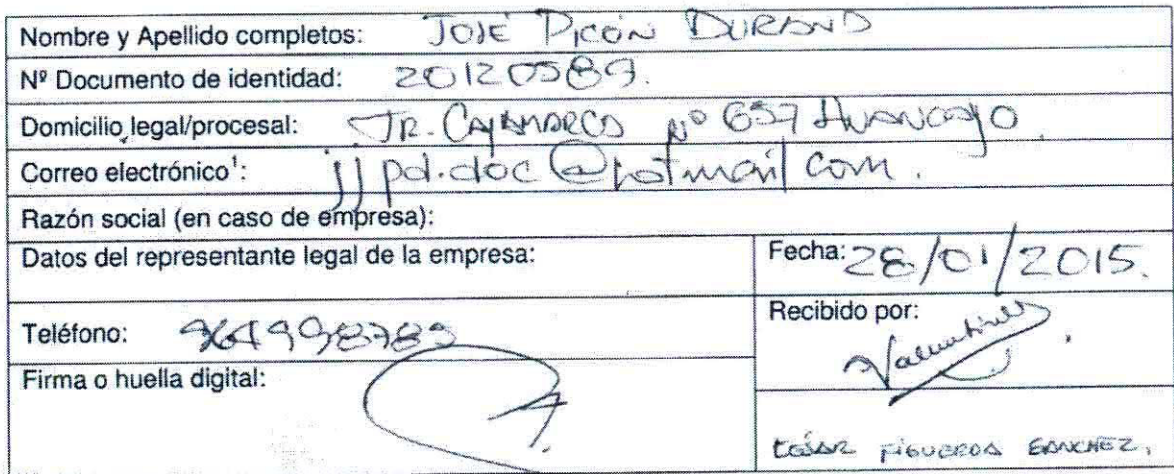 Nombre y Apellido completos: JOSÉ PICÓN DURAND
Nº Documento de identidad: 20120589.
Domicilio legal/procesal: JR. CAJAMARCA Nº 657 HUANCAYO.
Correo electrónico¹: jjpd.doc@hotmail com.
Razón social (en caso de empresa):
Datos del representante legal de la empresa:
Fecha: 28/01/2015.
Teléfono: 964998789
Recibido por:
Firma o huella digital:
CESAR FIGUEROA SANCHEZ.